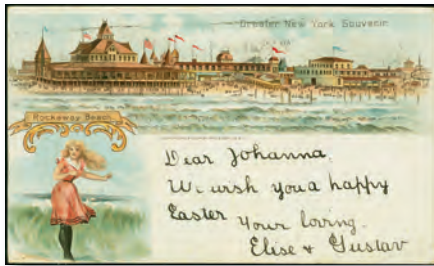 Greater New York Souvenir.
Rockaway Beach.
Dear Johanna,
We wish you a happy
Easter Your loving.
Elise & Gustav